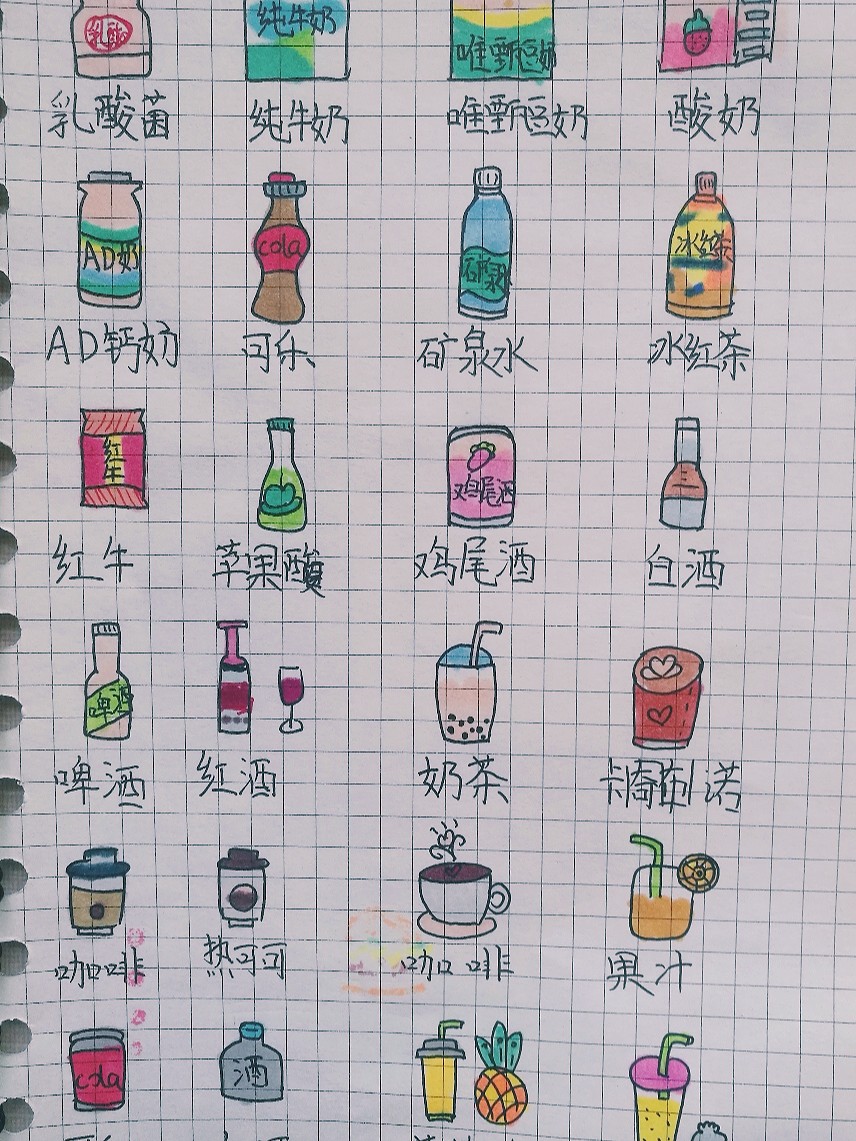 乳酸
纯牛奶
唯甄豆奶
乳酸菌
纯牛奶
唯甄豆奶
酸奶
AD奶
cola
矿泉
冰红茶
AD钙奶
可乐
矿泉水
冰红茶
红牛
鸡尾酒
红牛
苹果酸
鸡尾酒
白酒
啤酒
啤酒
红酒
奶茶
卡布诺
咖啡
热可可
咖啡
果汁
cola
酒